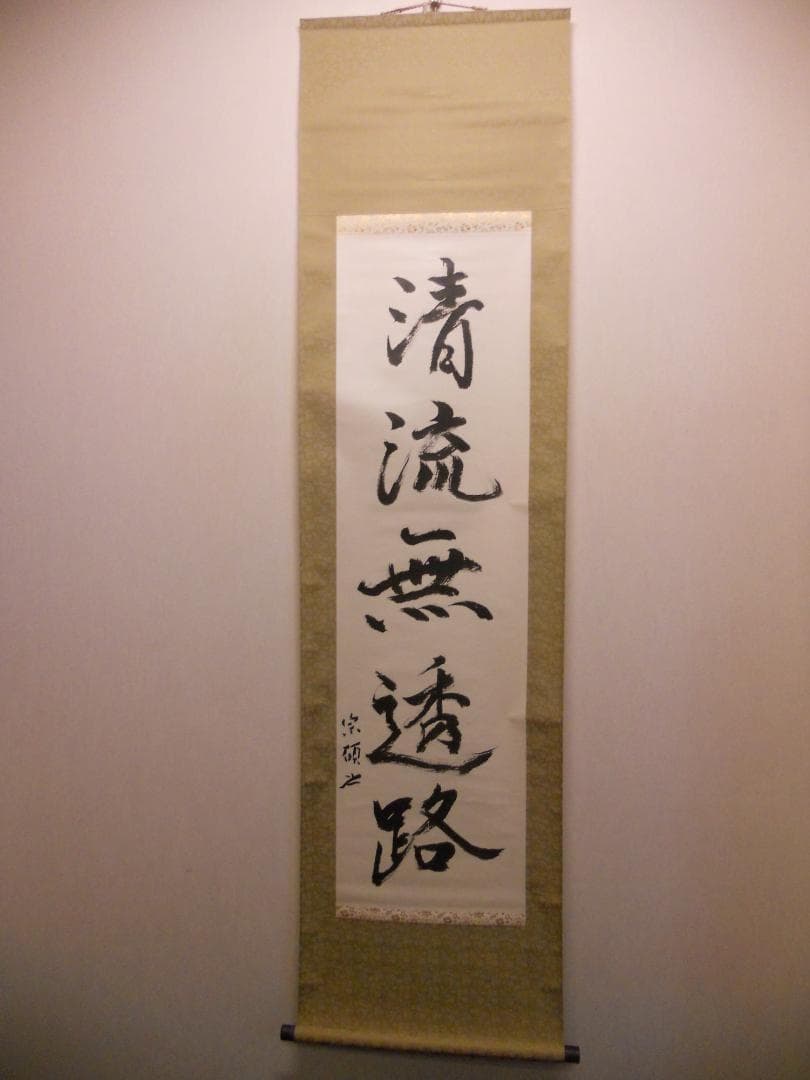 清流無透路
宗碩之